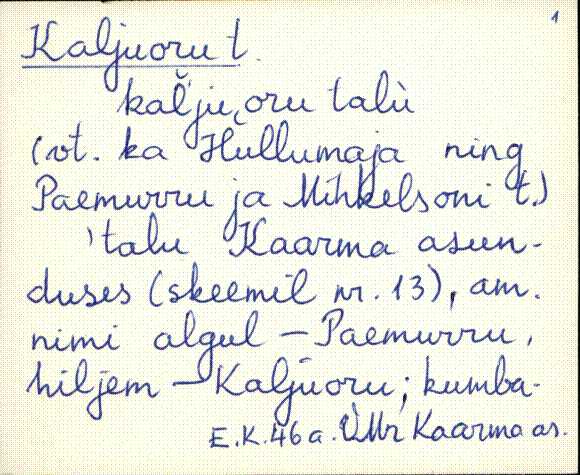 1
Kaljuoru t.
kal̆ju͵oru talù
(vt. ka Hullumaja ning
Paemurru ja Mihkelsoni t.)
'talu Kaarma asun-
duses (skeemil nr. 13), am.
nimi algul – Paemurru,
hiljem – Kaljuoru; kumba-
E.K. 46 a. VMr Kaarma as.